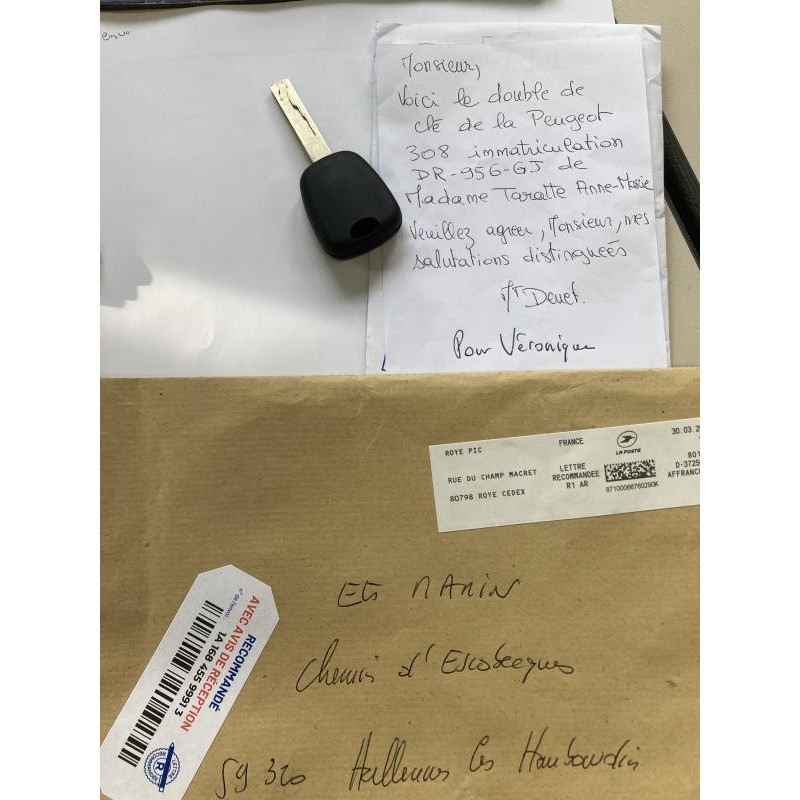 envo
Monsieur,
Voici le double de
clé de la Peugeot
308 immatriculation
DR-956-GJ de
Madame Taratte Anne-Marie
Veuillez agréer, Monsieur, mes
salutations distinguées
Mr Deuet.
Pour Véronique
ROYE PIC
RUE DU CHAMP MACRET
80798 ROYE CEDEX
FRANCE
LETTRE
RECOMMANDEE
R1 AR
LA POSTE
87100066760290K
30.03.2
801
D-3725
AFFRANC
n° de l'envoi :
RECOMMANDÉ
AVEC AVIS DE RÉCEPTION
1A 168 455 9991 3
LETTRE
R
RECOMMANDÉE
Ets MARIN
Chemin d'Escobecques
59 320 Hallennes les Haubourdin